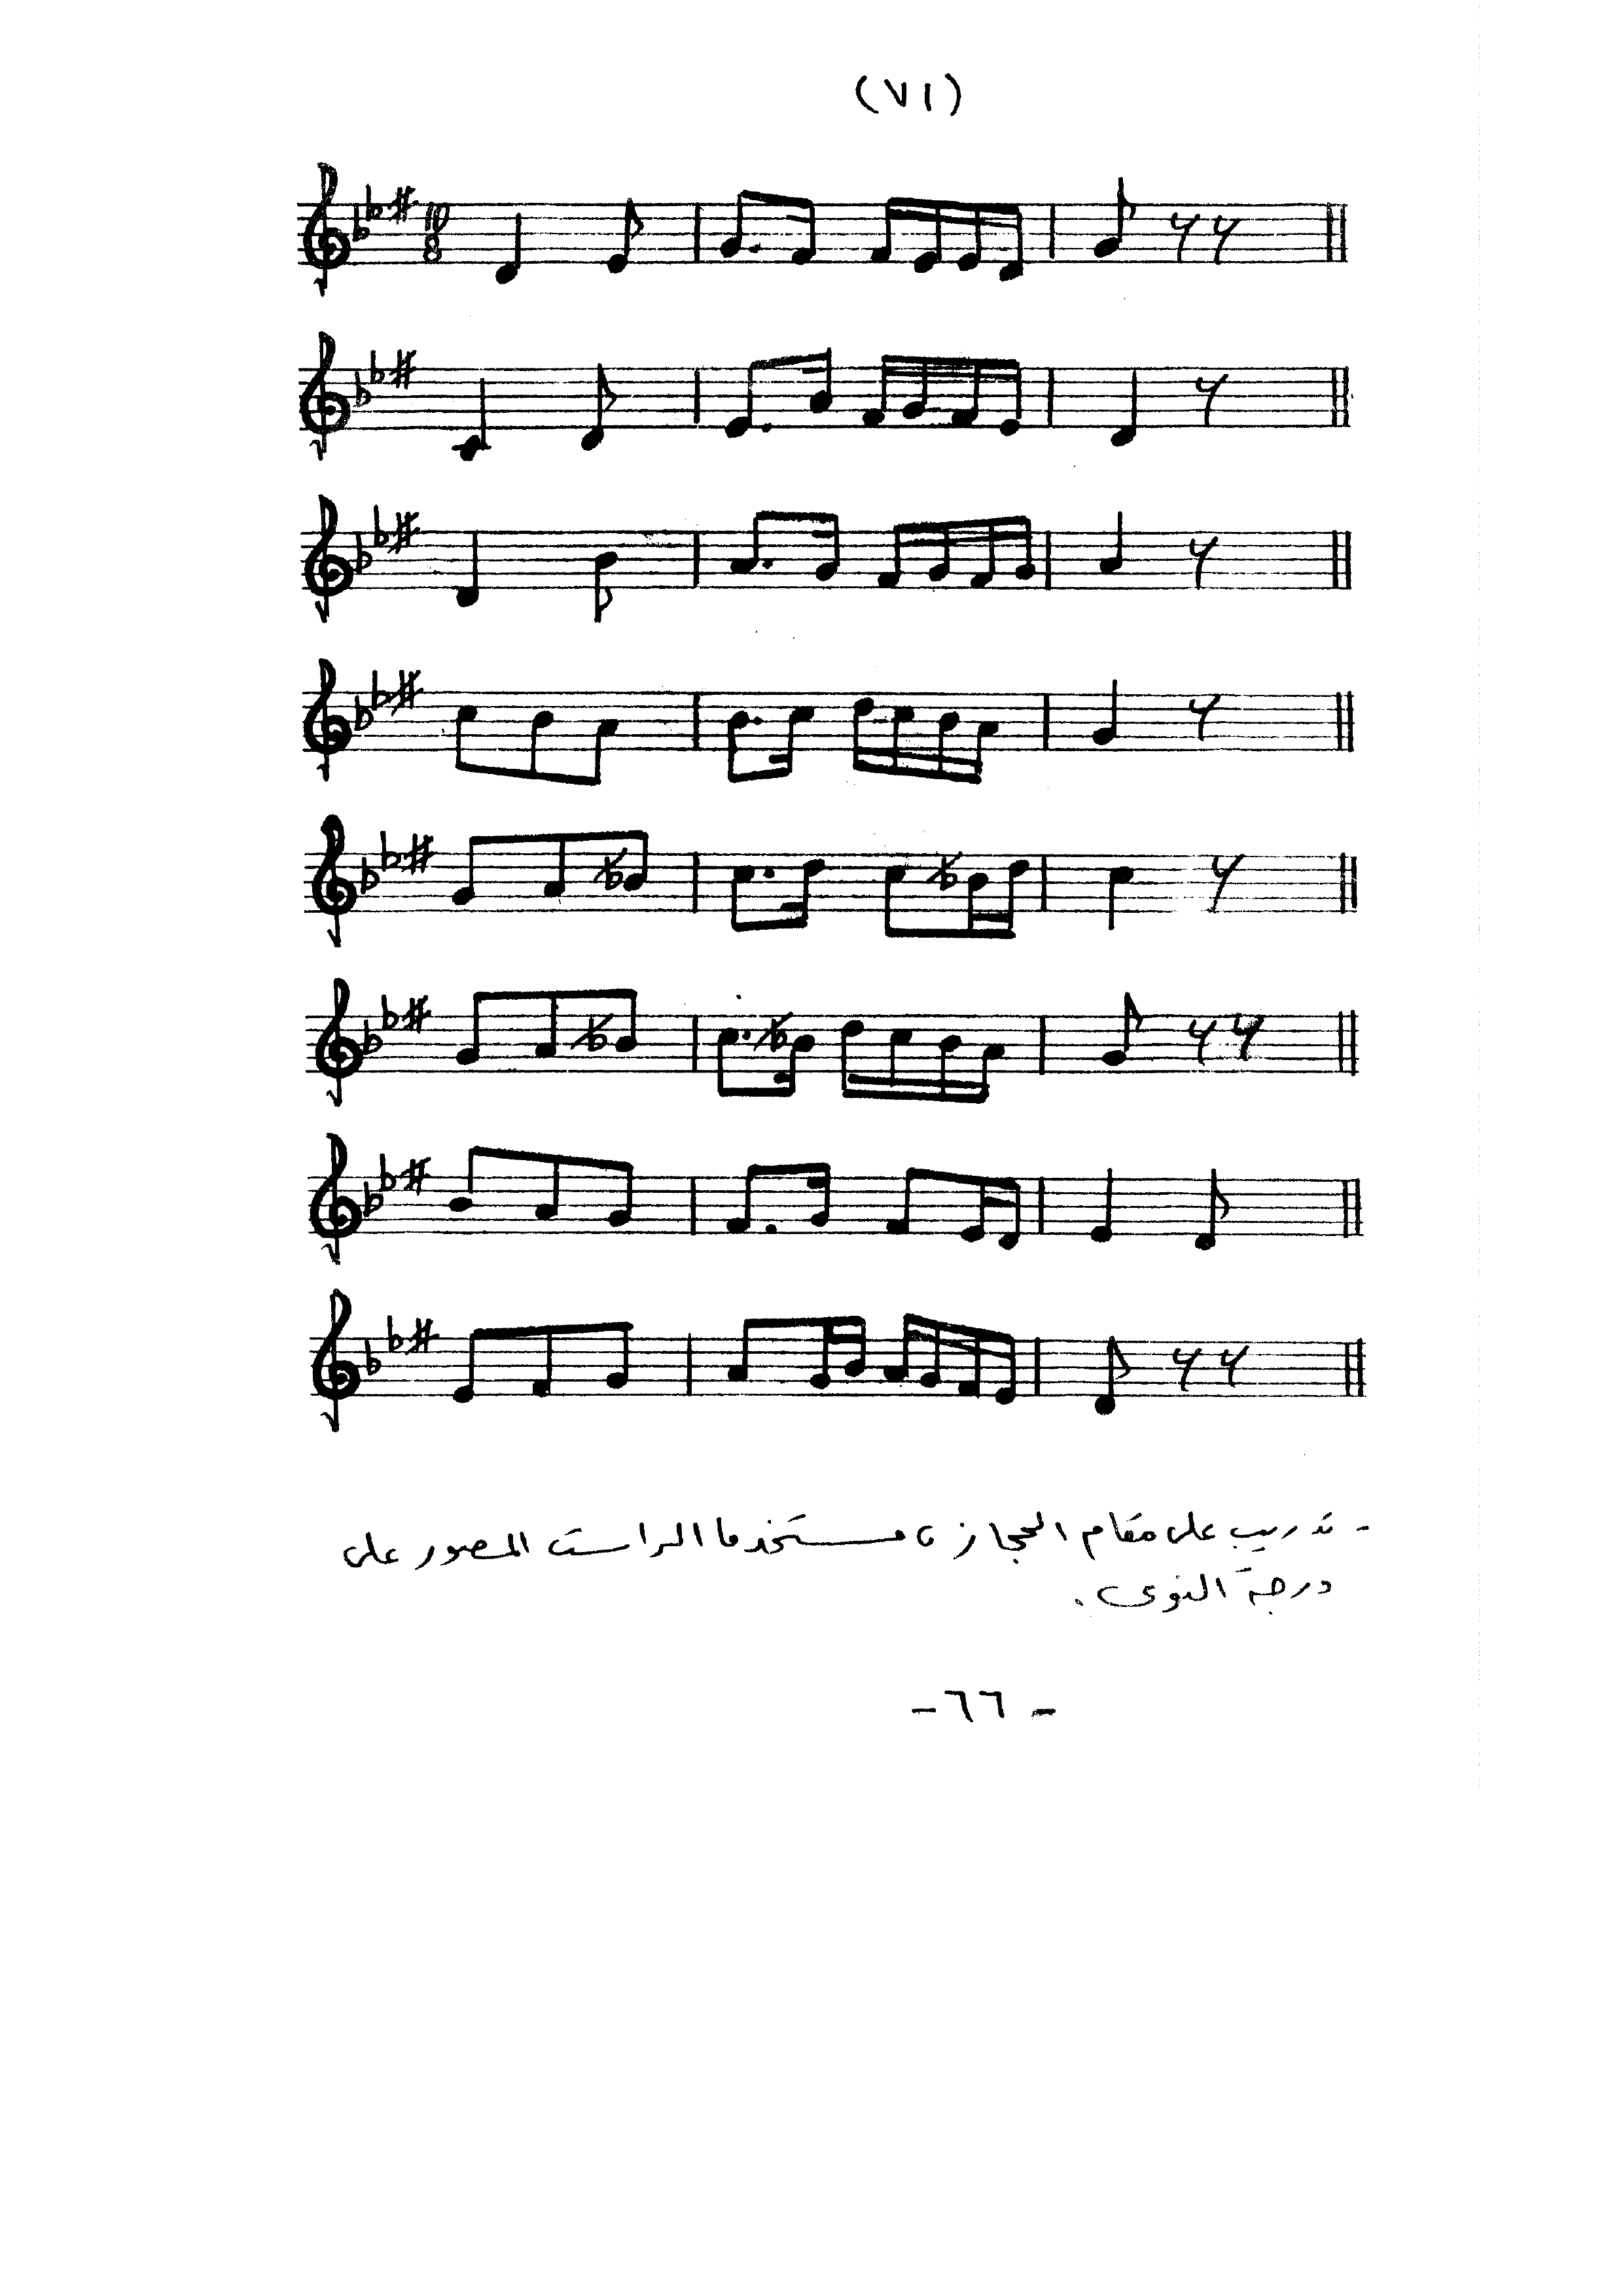 (٧١)
10
8
- تدريب على مقام الحجاز ، مستخدما الراست المصور على
درجة النوى .
- ٦٦ -